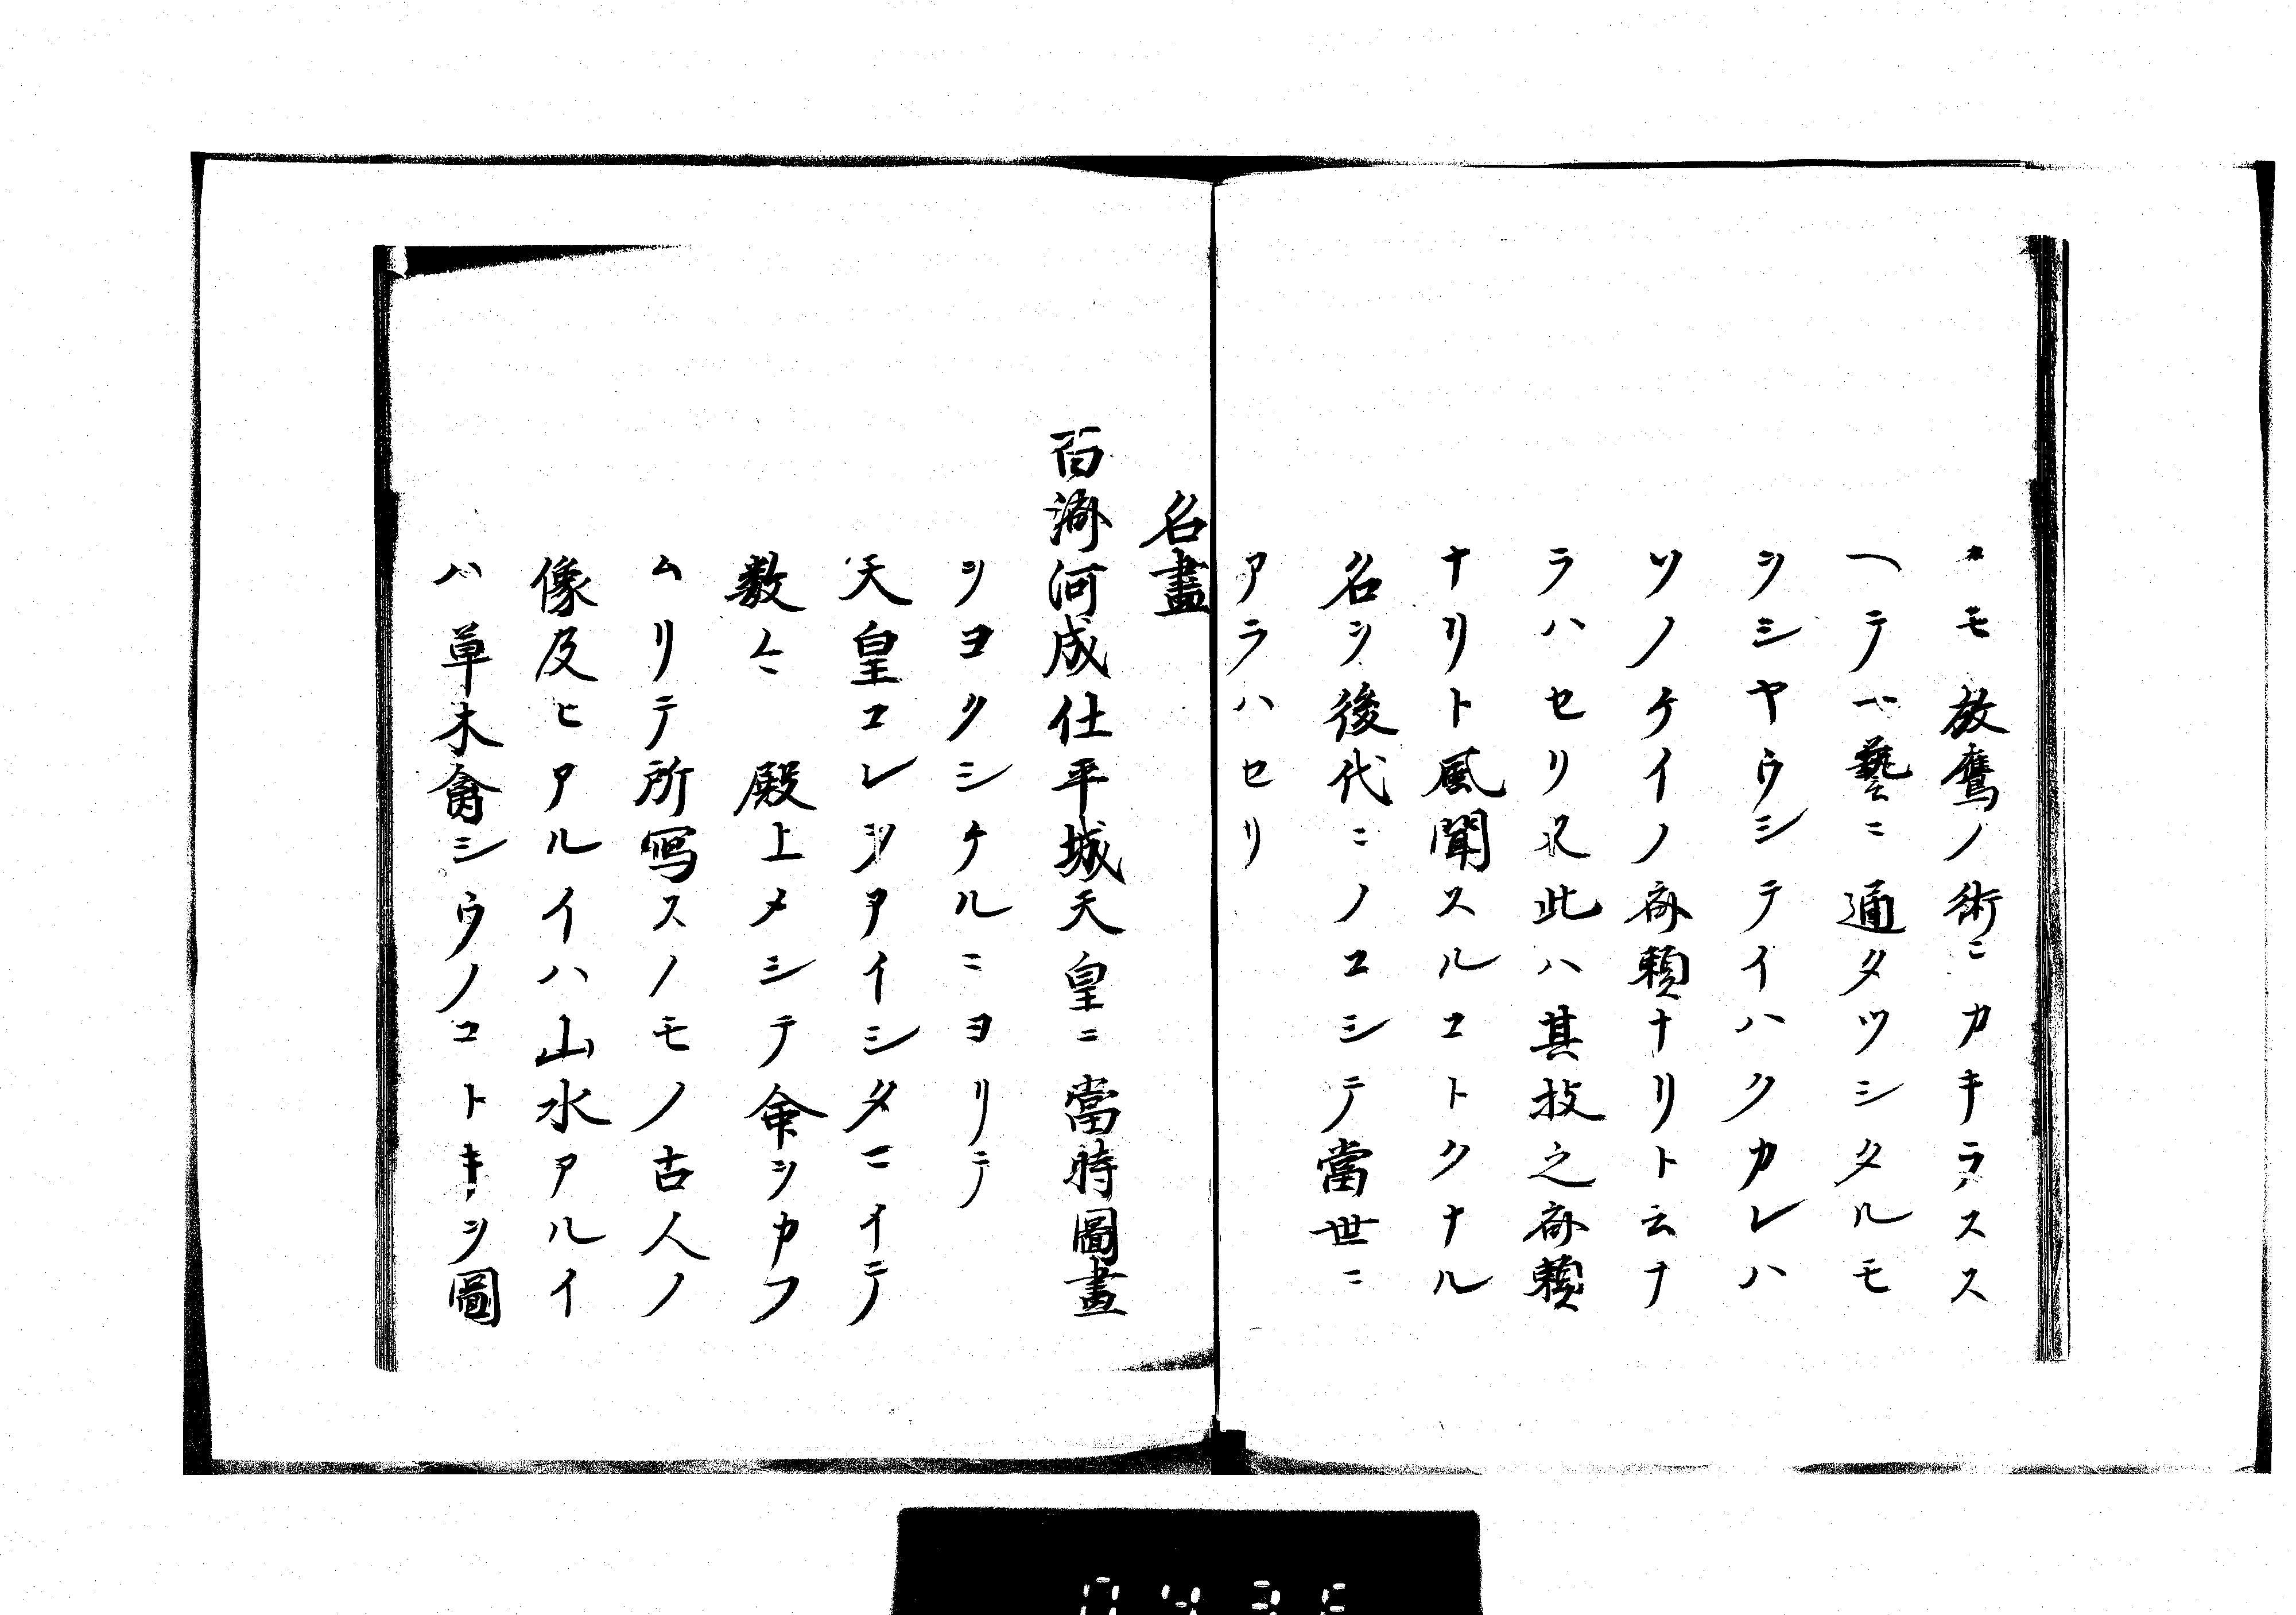 カモ放鷹ノ術ニカキラスス
ヘテ一藝ニ通タツシタルモ
シシヤウシテイハクカレハ
ソノケイノ斎頼ナリト云ナ
ラハセリ又此ハ其技之斎頼
ナリト風聞スルコトクナル
名ヲ後代ニノコシテ當世ニ
アラハセリ
名畫
百濟河成仕平城天皇ニ當時圖畫
ヲヨクシケルニヨリテ
天皇コレヲアイシタマイテ
数々殿上メシテ命ヲカフ
ムリテ所写スノモノ古人ノ
像及ヒアルイハ山水アルイ
ハ草木禽シウノコトキヲ圖